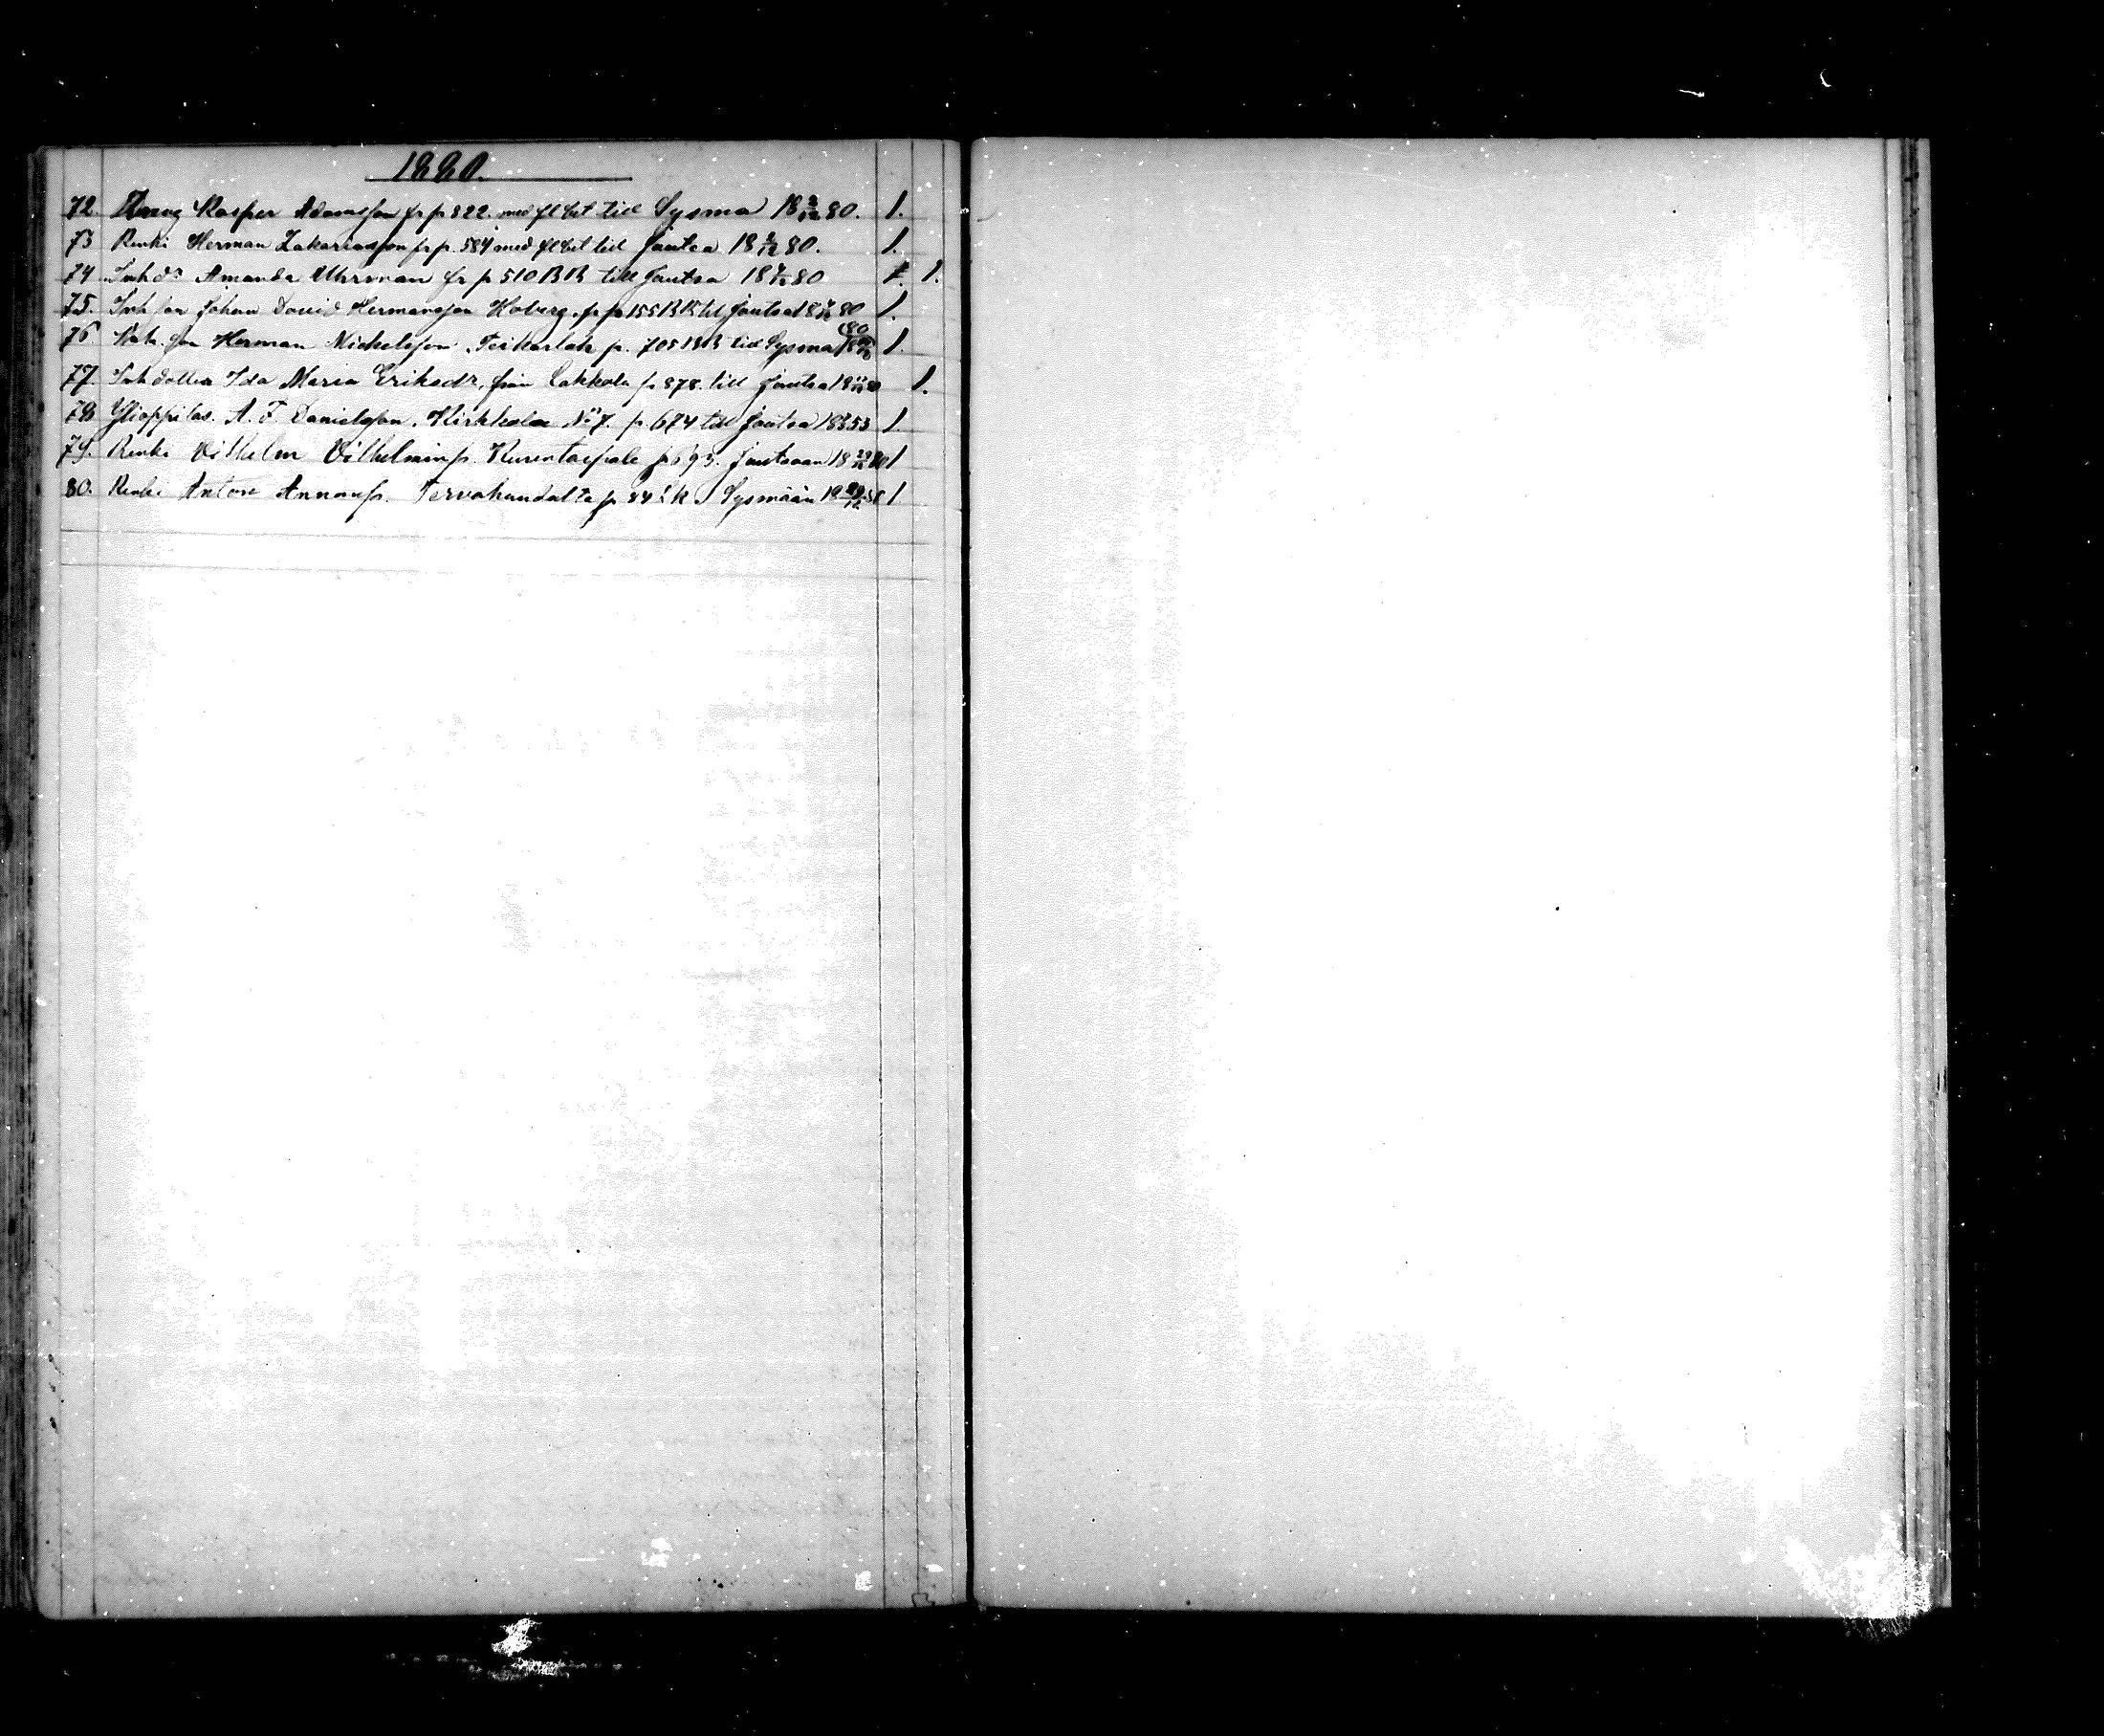 1880.
72. Dräng Kasper Adamsson fr p 822. med fl bet till Sysmä 18 3/12 80. 1.
73 Renki Herman Zakariasson fr p. 584 med fl bet till Joutsa 18 4/12 80. 1.
74 Inh dr Amanda Uhrman fr p 510 BB till Joutsa 18 80 1.
75. Inh son Johan David Hermansson Hoberg, fr p 155 BB till Joutsa 18 80 1.
76 son Herman Mickelsson p. 705 BB till Sysmä 18 80 1.
77. Inh dotter Ida Maria Eriksdr, från Lakkola p 878. till Joutsa 18 80 1.
78 Ylioppilas. A. F. Danielsson, Kirkkola No 7. p. 674 till Joutsa 18 1.
79. Renki Vilhelm Vilhelminp. Kurentaipale p. Joutsaan 18 80 1
80. Renki Anton Annanp. p Sysmään 18 1.